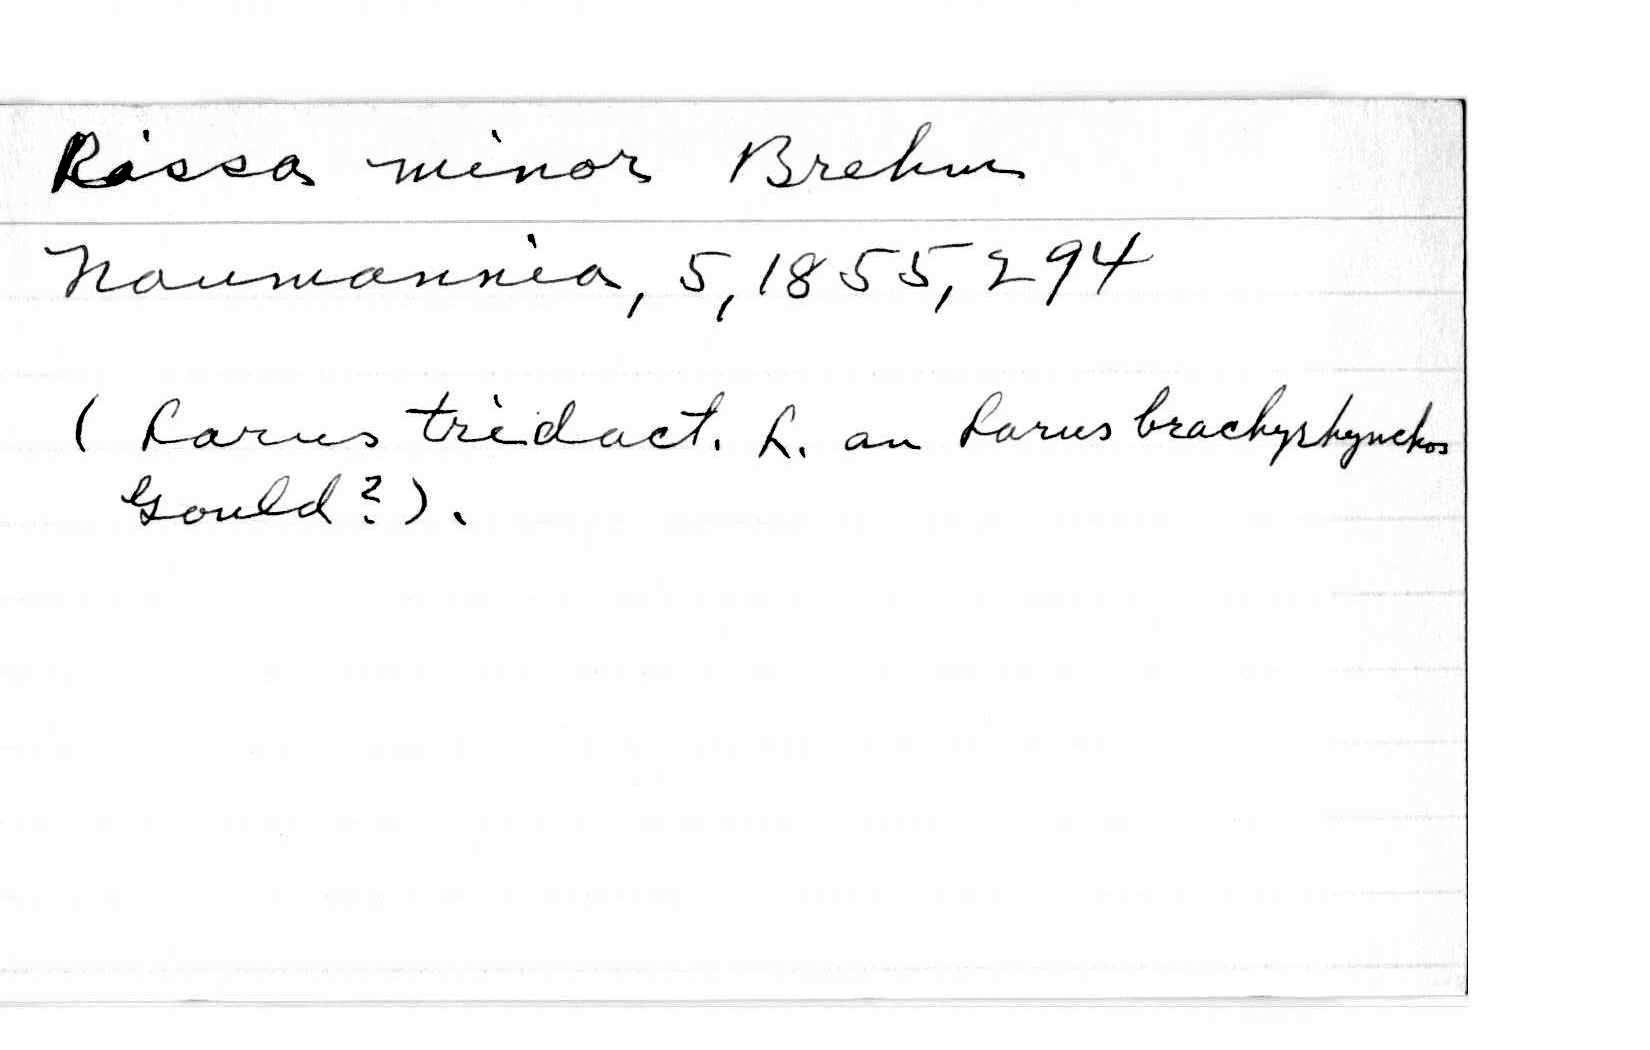 Rissa minor Brehm
Naumannia, 5, 1855, 294
( Larus tridact. L. an Larus brachyrhynchos
Gould?).